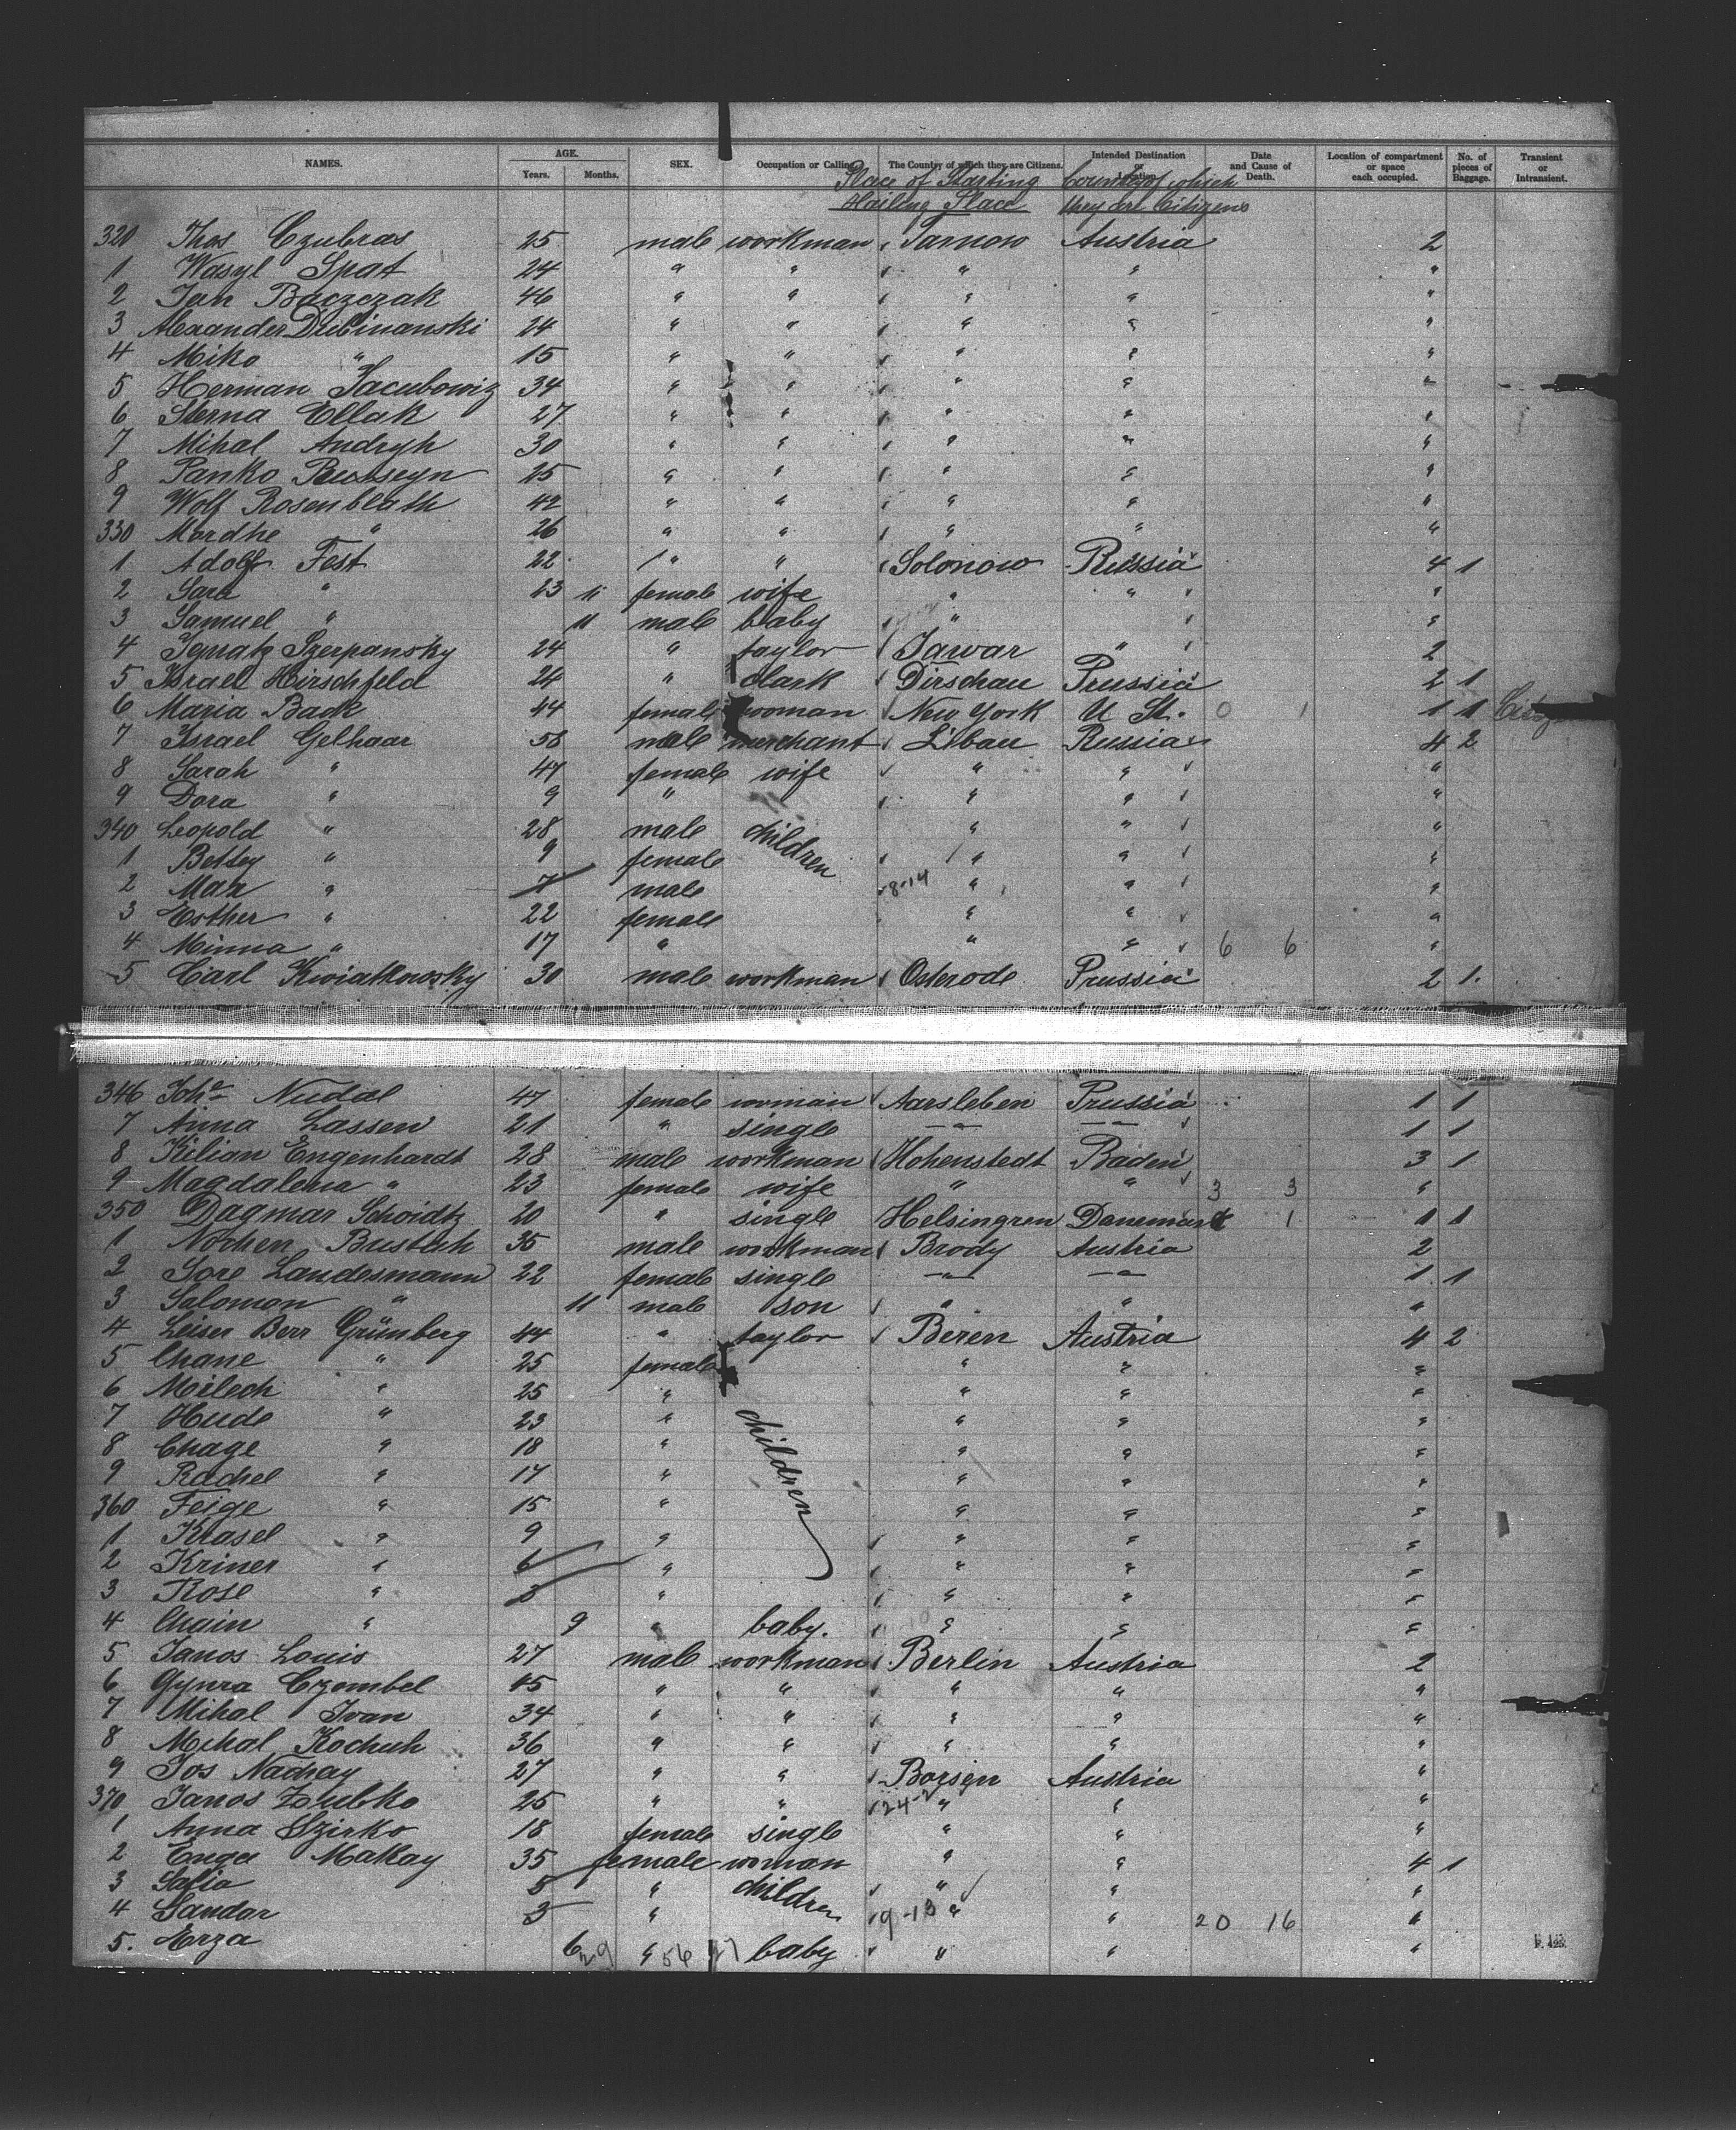 NAMES. AGE. Years. Months. SEX. Occupation or Calling. The Country of which they are Citizens. Intended Destination or Location. Date and Cause of Death. Location of compartment or space each occupied. No. of pieces of Baggage. Transient or Intransient.
Place of Starting Country of which
Hailing Place they are Citizens
320 Thos Czubras 25 male workman Tarnow Austria 2
1 Wasyl Spat 24 " " " " "
2 Jan Baczczak 46 " " " " "
3 Alexander Dubinanski 24 " " " " "
4 Miko " 15 " " " " "
5 Herman Jacubowiz 34 " " " " "
6 Sterna Ellak 27 " " " " "
7 Mihal Andryh 30 " " " " "
8 Panko 25 " " " " "
9 Wolf Rosenblath 42 " " " " "
330 Mordhe " 26 " " " " "
1 Adolf Fest 22 " " Solonow Russia 4 1
2 Sara " 23 female wife " " "
3 Samuel " 11 male baby " "
4 Ignatz Szerpansky 24 " taylor Jawar " 2
5 Israel Hirschfeld 24 " clark Dirschau Prussia 2 1
6 Maria Back 44 female woman New York U St. 0 1 1 1
7 Israel Gelhaar 58 male merchant Libau Russia 4 2
8 Sarah " 47 female wife " " "
9 Dora " 9 " " " "
340 Leopold " 28 male children " " "
1 Betsey " 9 female " " "
2 Max " 7 male 8-14 " " "
3 Esther " 22 female " " "
4 Minna " 17 " " " 6 6 "
5 Carl Kwiatkowsky 30 male workman Osterode Prussia 2 1.
346 Joha Nudal 47 female woman Aarsleben Prussia 1 1
7 Anna Lassen 21 " single —"— —"— 1 1
8 Kilian Engenhardt 28 male workman Hohenstedt Baden 3 1
9 Magdalena " 23 female wife " " 3 3 "
350 Dagmar Schoidtz 20 " single Helsingren Danemark 1 1 1
1 Nochen Bustah 35 male workman Brody Austria 2
2 Sore Landesmann 22 female single —"— —"— 1 1
3 Salomon " 11 male son " " "
4 Leiser Berr Grünberg 44 " taylor Beren Austria 4 2
5 Chane " 25 female " " "
6 Meilech " 25 " " " "
7 Hude " 23 " children " " "
8 Chage " 18 " " " "
9 Rachel " 17 " " " "
360 Feige " 15 " " " "
1 Krasel " 9 " " " "
2 Kriner " 6 " " " "
3 Rose " 3 " " " "
4 Chain " 9 " baby. " " "
5 Janos Louis 27 male workman Berlin Austria 2
6 Gyura Czombel 45 " " " " "
7 Mihal Ivan 34 " " " " "
8 Mihal Kochuh 36 " " " " "
9 Jos Nachay 27 " " Borsen Austria "
370 Janos Zubko 25 " " 24-2 " " "
1 Anna Szirko 18 female single " " "
2 Enga Makay 35 female woman " " 4 1
3 Safia 5 " children " " "
4 Sandor 3 " 9-13 " " 20 16 "
5. Erza 6 29 " 56 27 baby " " "